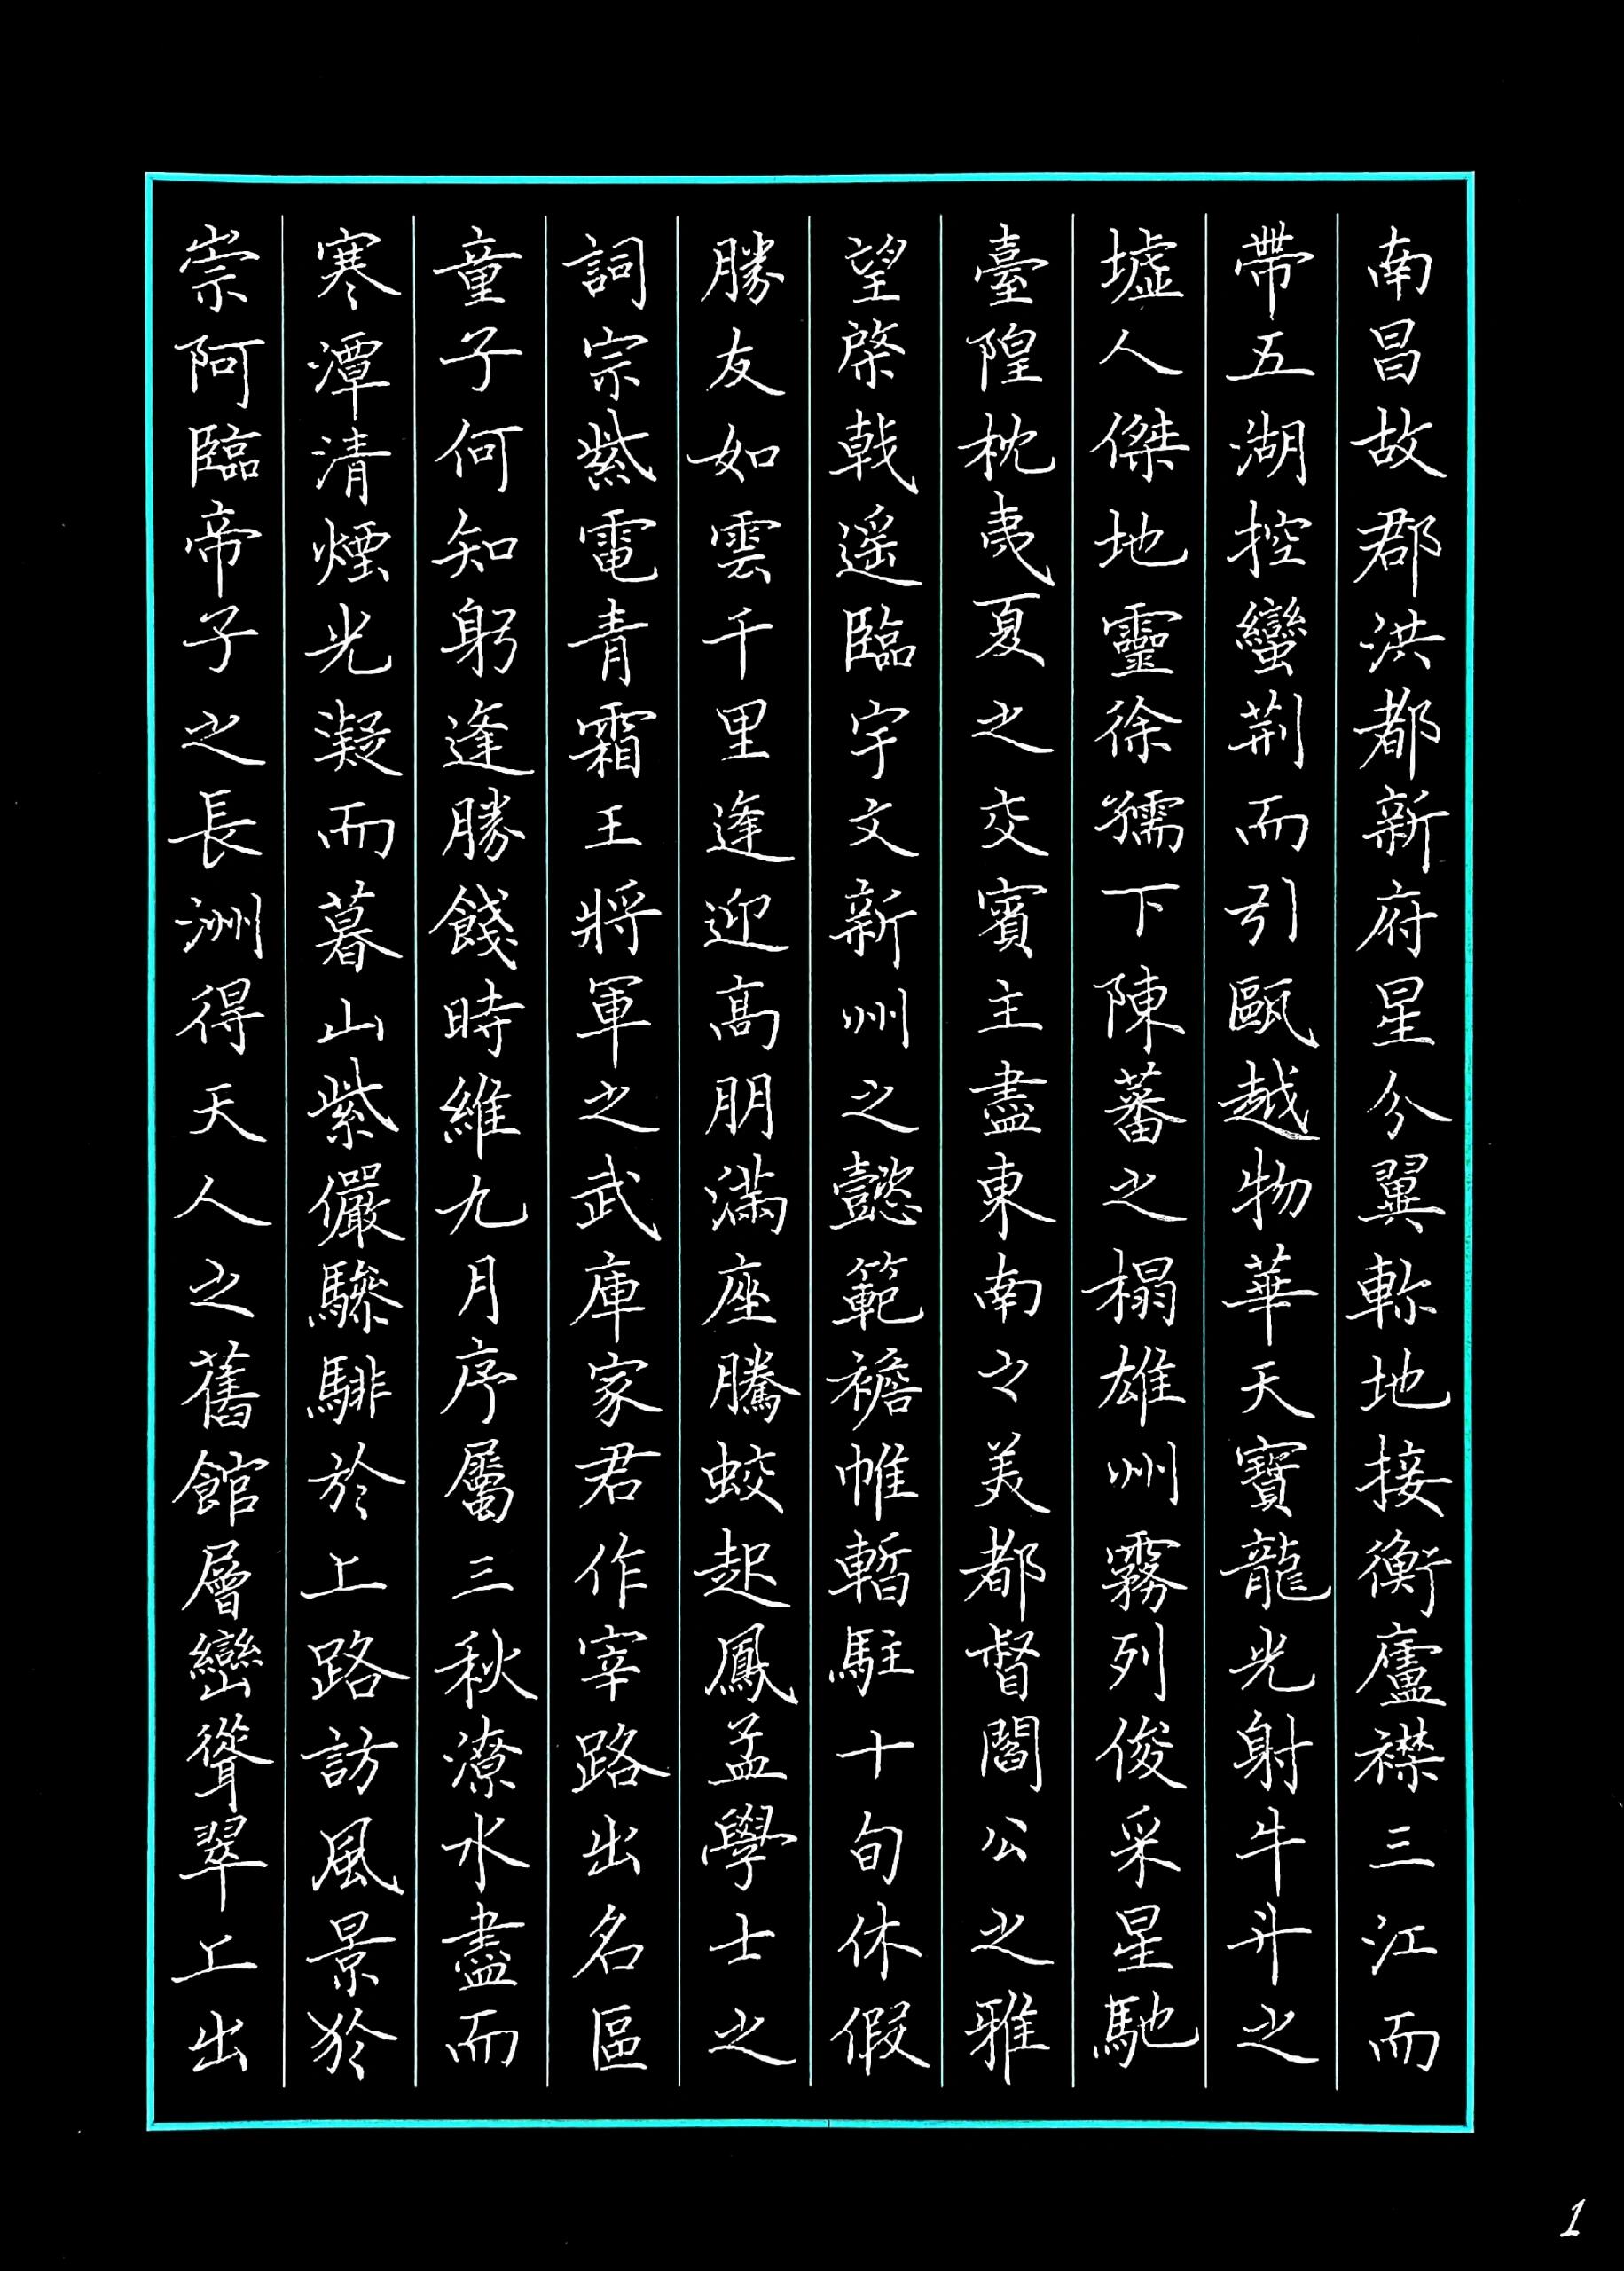 南昌故郡洪都新府星分翼軫地接衡廬襟三江而
帶五湖控蠻荆而引甌越物華天寶龍光射牛斗之
墟人傑地靈徐孺下陳蕃之榻雄州霧列俊采星馳
臺隍枕夷夏之交賓主盡東南之美都督閻公之雅
望棨戟遥臨宇文新州之懿範襜帷暫駐十旬休假
勝友如雲千里逢迎高朋滿座騰蛟起鳳孟學士之
詞宗紫電青霜王將軍之武庫家君作宰路出名區
童子何知躬逢勝餞時維九月序屬三秋潦水盡而
寒潭清煙光凝而暮山紫儼驂騑於上路訪風景於
崇阿臨帝子之長洲得天人之舊館層巒聳翠上出
1